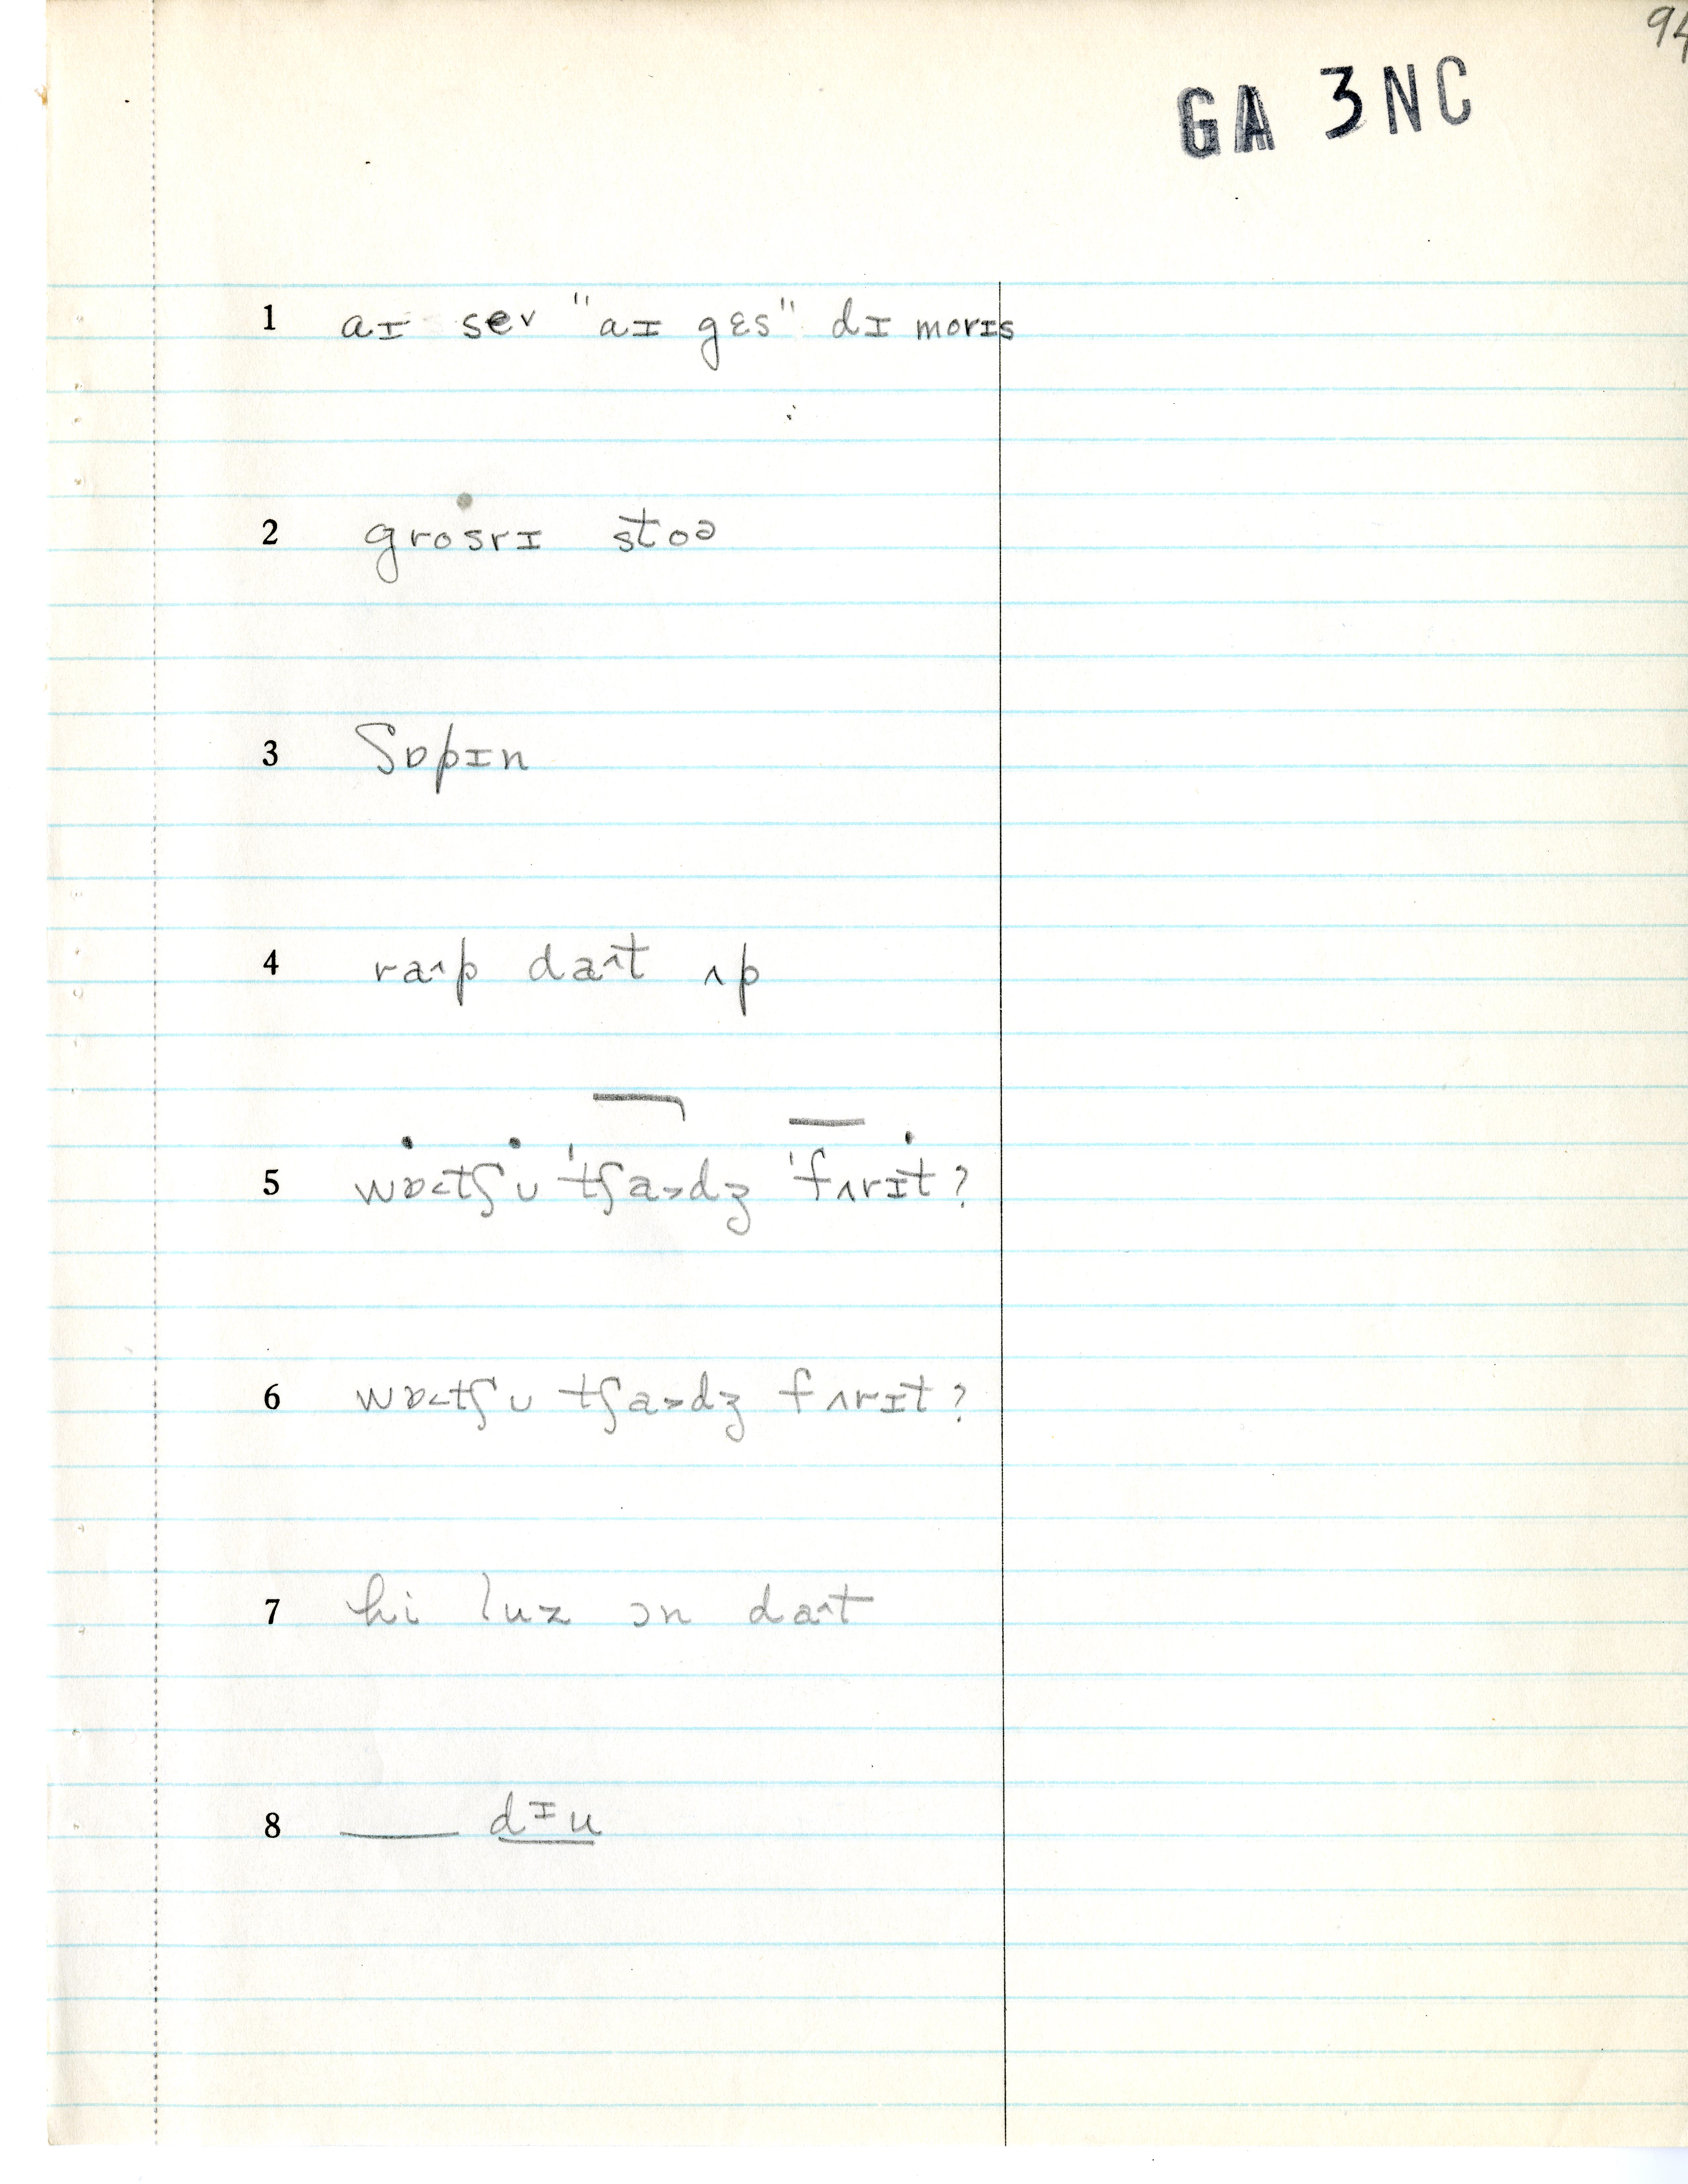 94
GA 3NC
1 aɪ sev "aɪ gɛs" dɪ morɪs
2 grosrɪ stoə
3 ʃɒpɪn
4 ra˄p da˄t ʌp
5 wɒ˂tʃu 'tʃa˃dʒ 'fʌrɪt?
6 wɒ˂tʃu tʃa˃dʒ fʌrɪt?
7 hi luz ɔn da˄t
8 ___ dɪu